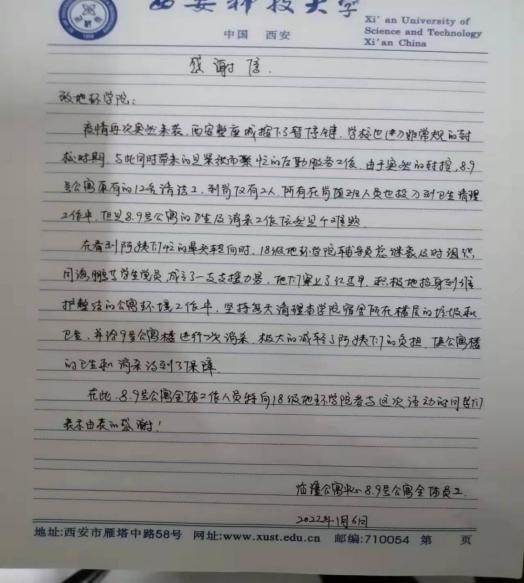 西安科技大学
中国 西安
Xi'an University of
Science and Technology
Xi'an China
感谢信.
致地环学院:
疫情再次突然来袭, 西安整座城按下了暂停键, 学校也进入非常规的封
校时期, 与此同时带来的是繁忙的后勤服务工作, 由于突然的封控, 8.9
号公寓原有的12名清洁工, 到岗仅有2人, 所有在岗值班人员也投入到卫生清理
工作中, 但是8.9号公寓的卫生及消杀工作依然是个难题.
在看到阿姨们忙的晕头转向时, 18级地环学院辅导员
鹏等学生党员, 成立了一支支援力量, 他们穿上了红马甲, 积极地投身到维
护整洁的公寓环境工作中, 坚持每天清理本学院宿舍所在楼层的垃圾和
卫生, 并给9号公寓楼进行一次消杀, 极大的减轻了阿姨们的负担, 使公寓楼
的卫生和消杀得到了保障.
在此, 8.9号公寓全体工作人员特向18级地环学院参与这次活动的同学们
表示由衷的感谢!
临潼公寓中心8.9号公寓全体员工.
2022年1月6日
地址:西安市雁塔中路58号 网址:www.xust.edu.cn 邮编:710054 第 页